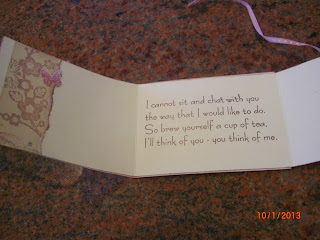 I cannot sit and chat with you
the way that I would like to do.
So brew yourself a cup of tea,
I'll think of you - you think of me.
10/1/2013